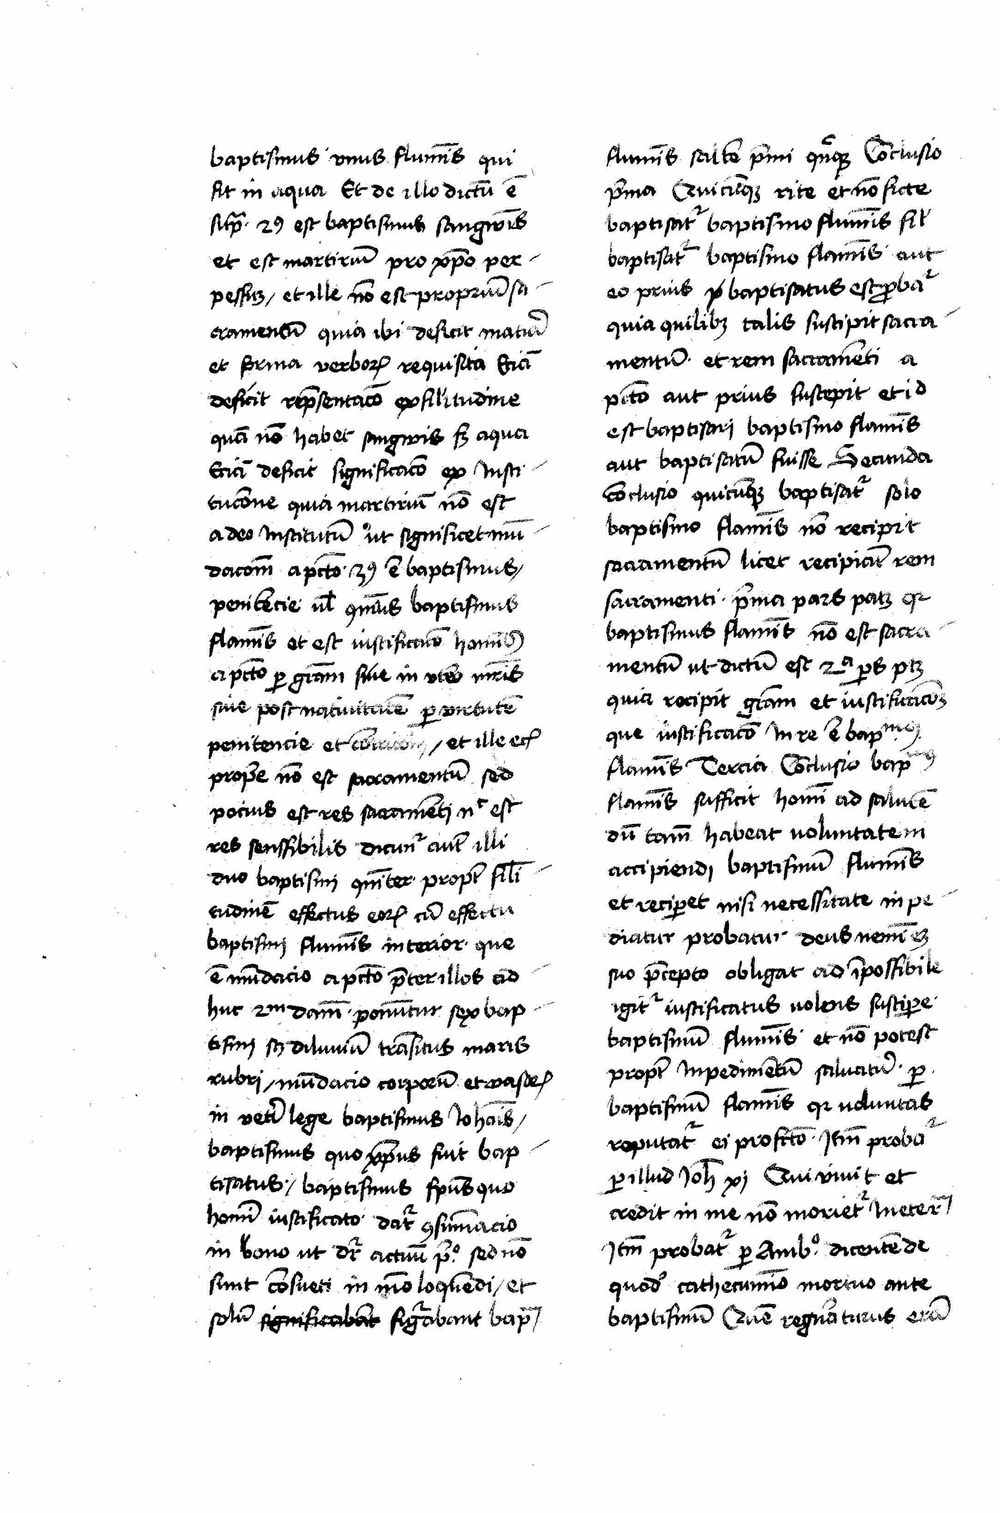 baptismus vnus flumīs qui
fit in aqua Et de illo dictū ē
sup̄ 2ꝰ est baptismus sangwīs
et est martiriū pro xp̄o per-
pessuꝫ / et ille nō est propriū sa-
cramentū quia ibi deficit materia
et forma verboꝝ requisita Eciā
deficit rep̄sentacō ex silitudine
quā nō habet sangwis sꝫ aqua
Eciā deficit significacō ex insti-
tucōne quia martiriū nō est
a deo institutū ut significet mū-
dacōm a pctō 3ꝰ ē baptismus /
penitēcie ul̄ baptismus
flamīs et est iustificacō homīs
a pctō ꝑ grām siue in vtero mr̄is
siue post natiuitatē ꝑ virtutē
penitencie et / et ille eciā
propē nō est sacramentū sed
pocius est res sacramēti nͨ est
res sensibilis dicunͬ autē illi
duo baptismi propt̄ sili-
tudinē effectus eoꝝ cū effectu
baptismi flumīs interior que
ē mūdacio a pctō p̄ter illos ad-
huc 2m damͫ ponūtur sex bap-
tismi scꝫ diluuiū trāsitus maris
rubri / mūdacio corporū et vasoꝝ
in veti lege baptismus Iohāis /
baptismus quo xp̄us fuit bap-
tisatus / baptismus sp̄us quo
homī iustificato datͬ ꝯsūmacio
in bono ut dr̄ actuū p̄ᵒ sed nō
sunt cōsueti in mō loquēdi / et
solū significabāt figᵃrabant bapᵐ
flumīs salt̄e p̄mi Cōclusio
p̄ma Quicūqꝫ rite et nō ficte
baptisatͬ baptismo flumīs sił
baptisatͬ baptismo flamīs aut
eo prius baptisatus est ꝓbaͬ
quia quilibꝫ talis suscipit sacra-
mentum et rem sacramēti a
pctō aut prius suscepit et id
est baptisari baptismo flamīs
aut baptisatū fuisse Secunda
cōclusio quicūqꝫ baptisatͬ solo
baptismo flamīs nō recipit
sacramentū licet recipiat rem
sacramenti p̄ma pars patꝫ qꝛ
baptismus flamīs nō est sacra-
mentū ut dictū est 2ᵃ ps ptꝫ
quia recipit grām et iustificacōꝫ
que iustificacō in re ē bapᵐᵘˢ
flamīs Tercia Cōclusio bapᵐᵘˢ
flamīs sufficit homī ad salutē
dū tam̄ habeat voluntatem
accipiendi baptismū flumīs
et reciperet nisi necessitate inpe-
diatur probatur deus nemīeꝫ
suo p̄cepto obligat ad īpossibile
igitͬ iustificatus volens suscipe
baptismū flumīs et nō potest
propt̄ inpedimētū saluatur ꝑ
baptismū flamīs qꝛ voluntas
reputatͬ ei pro fctō Itm̄ probaͬ
ꝑ illud Joh̄ xi Qui viuit et
credit in me nō morietͬ in eter̄
Itm̄ probatͬ ꝑ Ambᵒ dicentē de
quodᵒ cathecumīo mortuo ante
baptismū Quē regnāturus erā